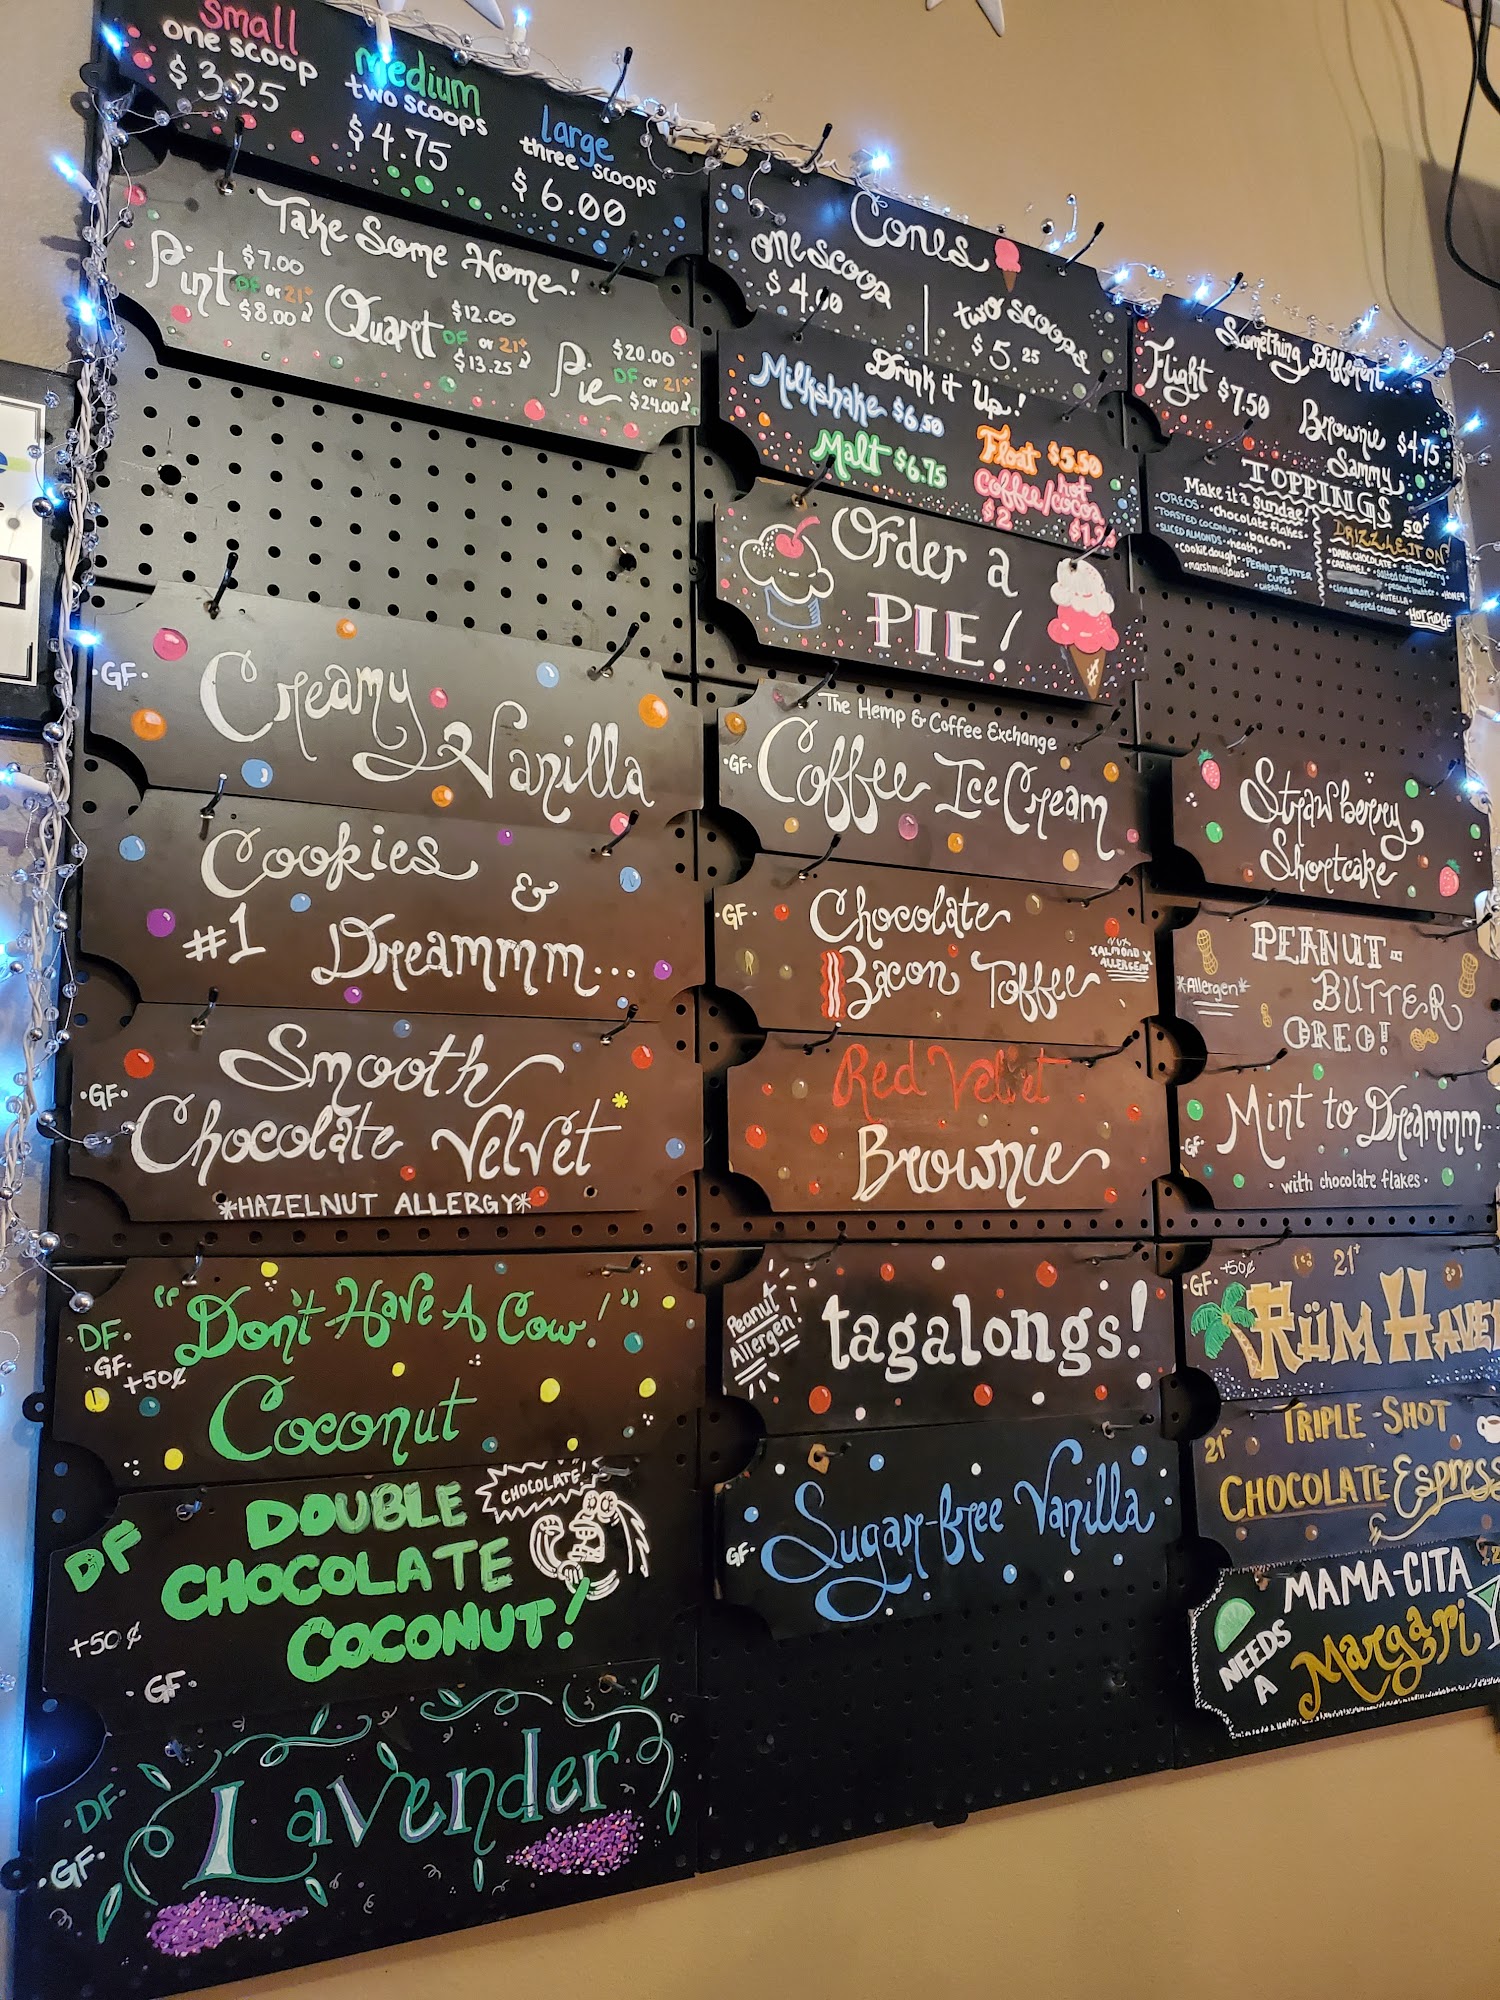 small
one scoop
$3.25
medium
two scoops
$4.75
large
three scoops
$6.00
Take Some Home!
Pint
$7.00
DF or 21+
$8.00
Quart
$12.00
DF or 21+
$13.25
Pie
$20.00
DF or 21+
$24.00
Cones
one scoop
$4.00
two scoops
$5.25
Drink it Up!
Milkshake $6.50
Malt $6.75
Float $5.50
coffee/hot cocoa
$2
Order a
PIE!
Something Different...
Flight $7.50
Brownie Sammy $4.75
TOPPINGS
50¢
Make it a Sundae!
•OREOS• •chocolate flakes•
•TOASTED COCONUT• •bacon•
•SLICED ALMONDS• •heath•
•cookie dough• •PEANUT BUTTER CUPS•
•marshmallows• •CHERRIES•
DRIZZLE IT ON
•DARK CHOCOLATE• •strawberry•
•CARAMEL• •salted caramel•
•peanut butter• •HONEY•
•cinnamon• •NUTELLA•
•whipped cream• •HOT FUDGE
•GF•
Creamy Vanilla
Cookies &
#1 Dreammm...
•GF•
Smooth
Chocolate Velvet*
*HAZELNUT ALLERGY*
The Hemp & Coffee Exchange
•GF•
Coffee Ice Cream
•GF•
Chocolate
Bacon Toffee
ALMOND
ALLERGEN
Red Velvet
Brownie
Strawberry
Shortcake
PEANUT-
BUTTER
OREO!
*Allergen*
•GF•
Mint to Dreammm...
•with chocolate flakes•
DF•
•GF•
+50¢
"Don't Have A Cow!"
Coconut
DF
+50¢
•GF•
DOUBLE
CHOCOLATE
COCONUT!
CHOCOLATE!
•DF•
•GF•
Lavender
Peanut
Allergen!
tagalongs!
GF•
Sugar-free Vanilla
•GF•
+50¢
21+
RUM HAVEN
21+
TRIPLE-SHOT
CHOCOLATE
MAMA-CITA
NEEDS
A